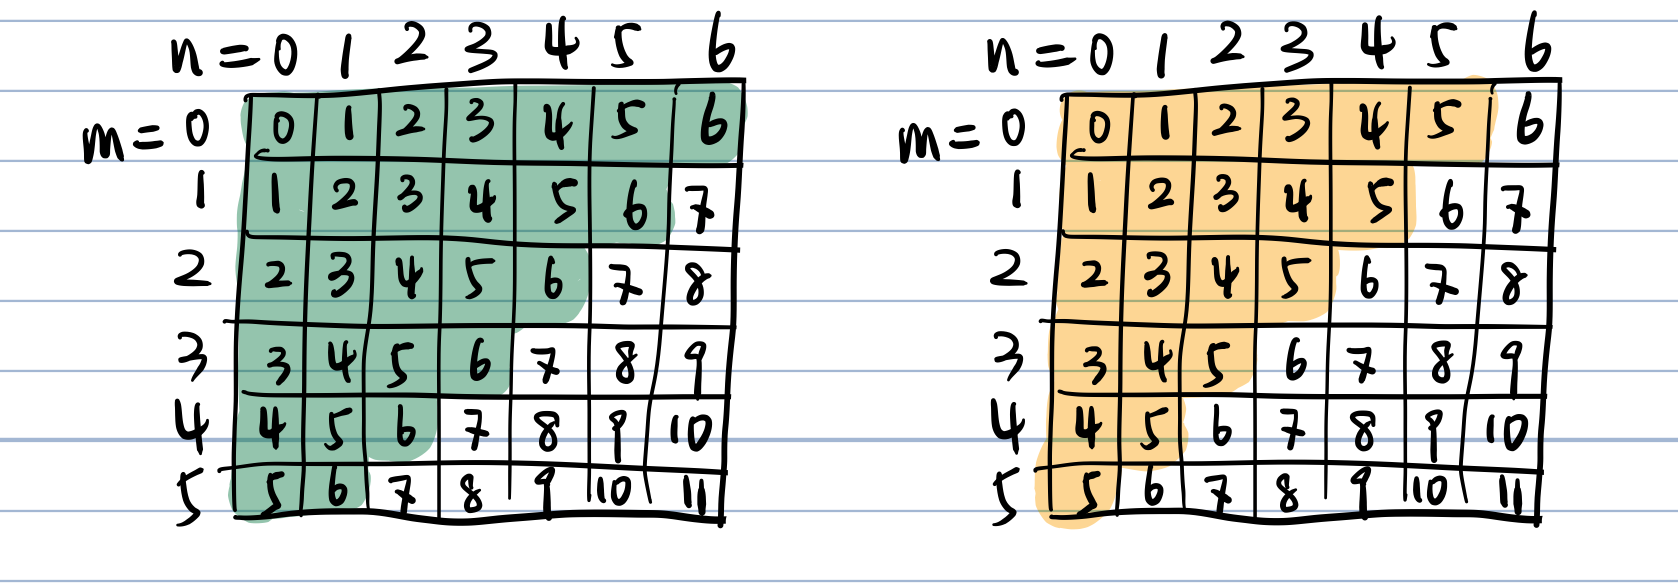 n = 0 1 2 3 4 5 6
m = 0 0 1 2 3 4 5 6
1 1 2 3 4 5 6 7
2 2 3 4 5 6 7 8
3 3 4 5 6 7 8 9
4 4 5 6 7 8 9 10
5 5 6 7 8 9 10 11
n = 0 1 2 3 4 5 6
m = 0 0 1 2 3 4 5 6
1 1 2 3 4 5 6 7
2 2 3 4 5 6 7 8
3 3 4 5 6 7 8 9
4 4 5 6 7 8 9 10
5 5 6 7 8 9 10 11